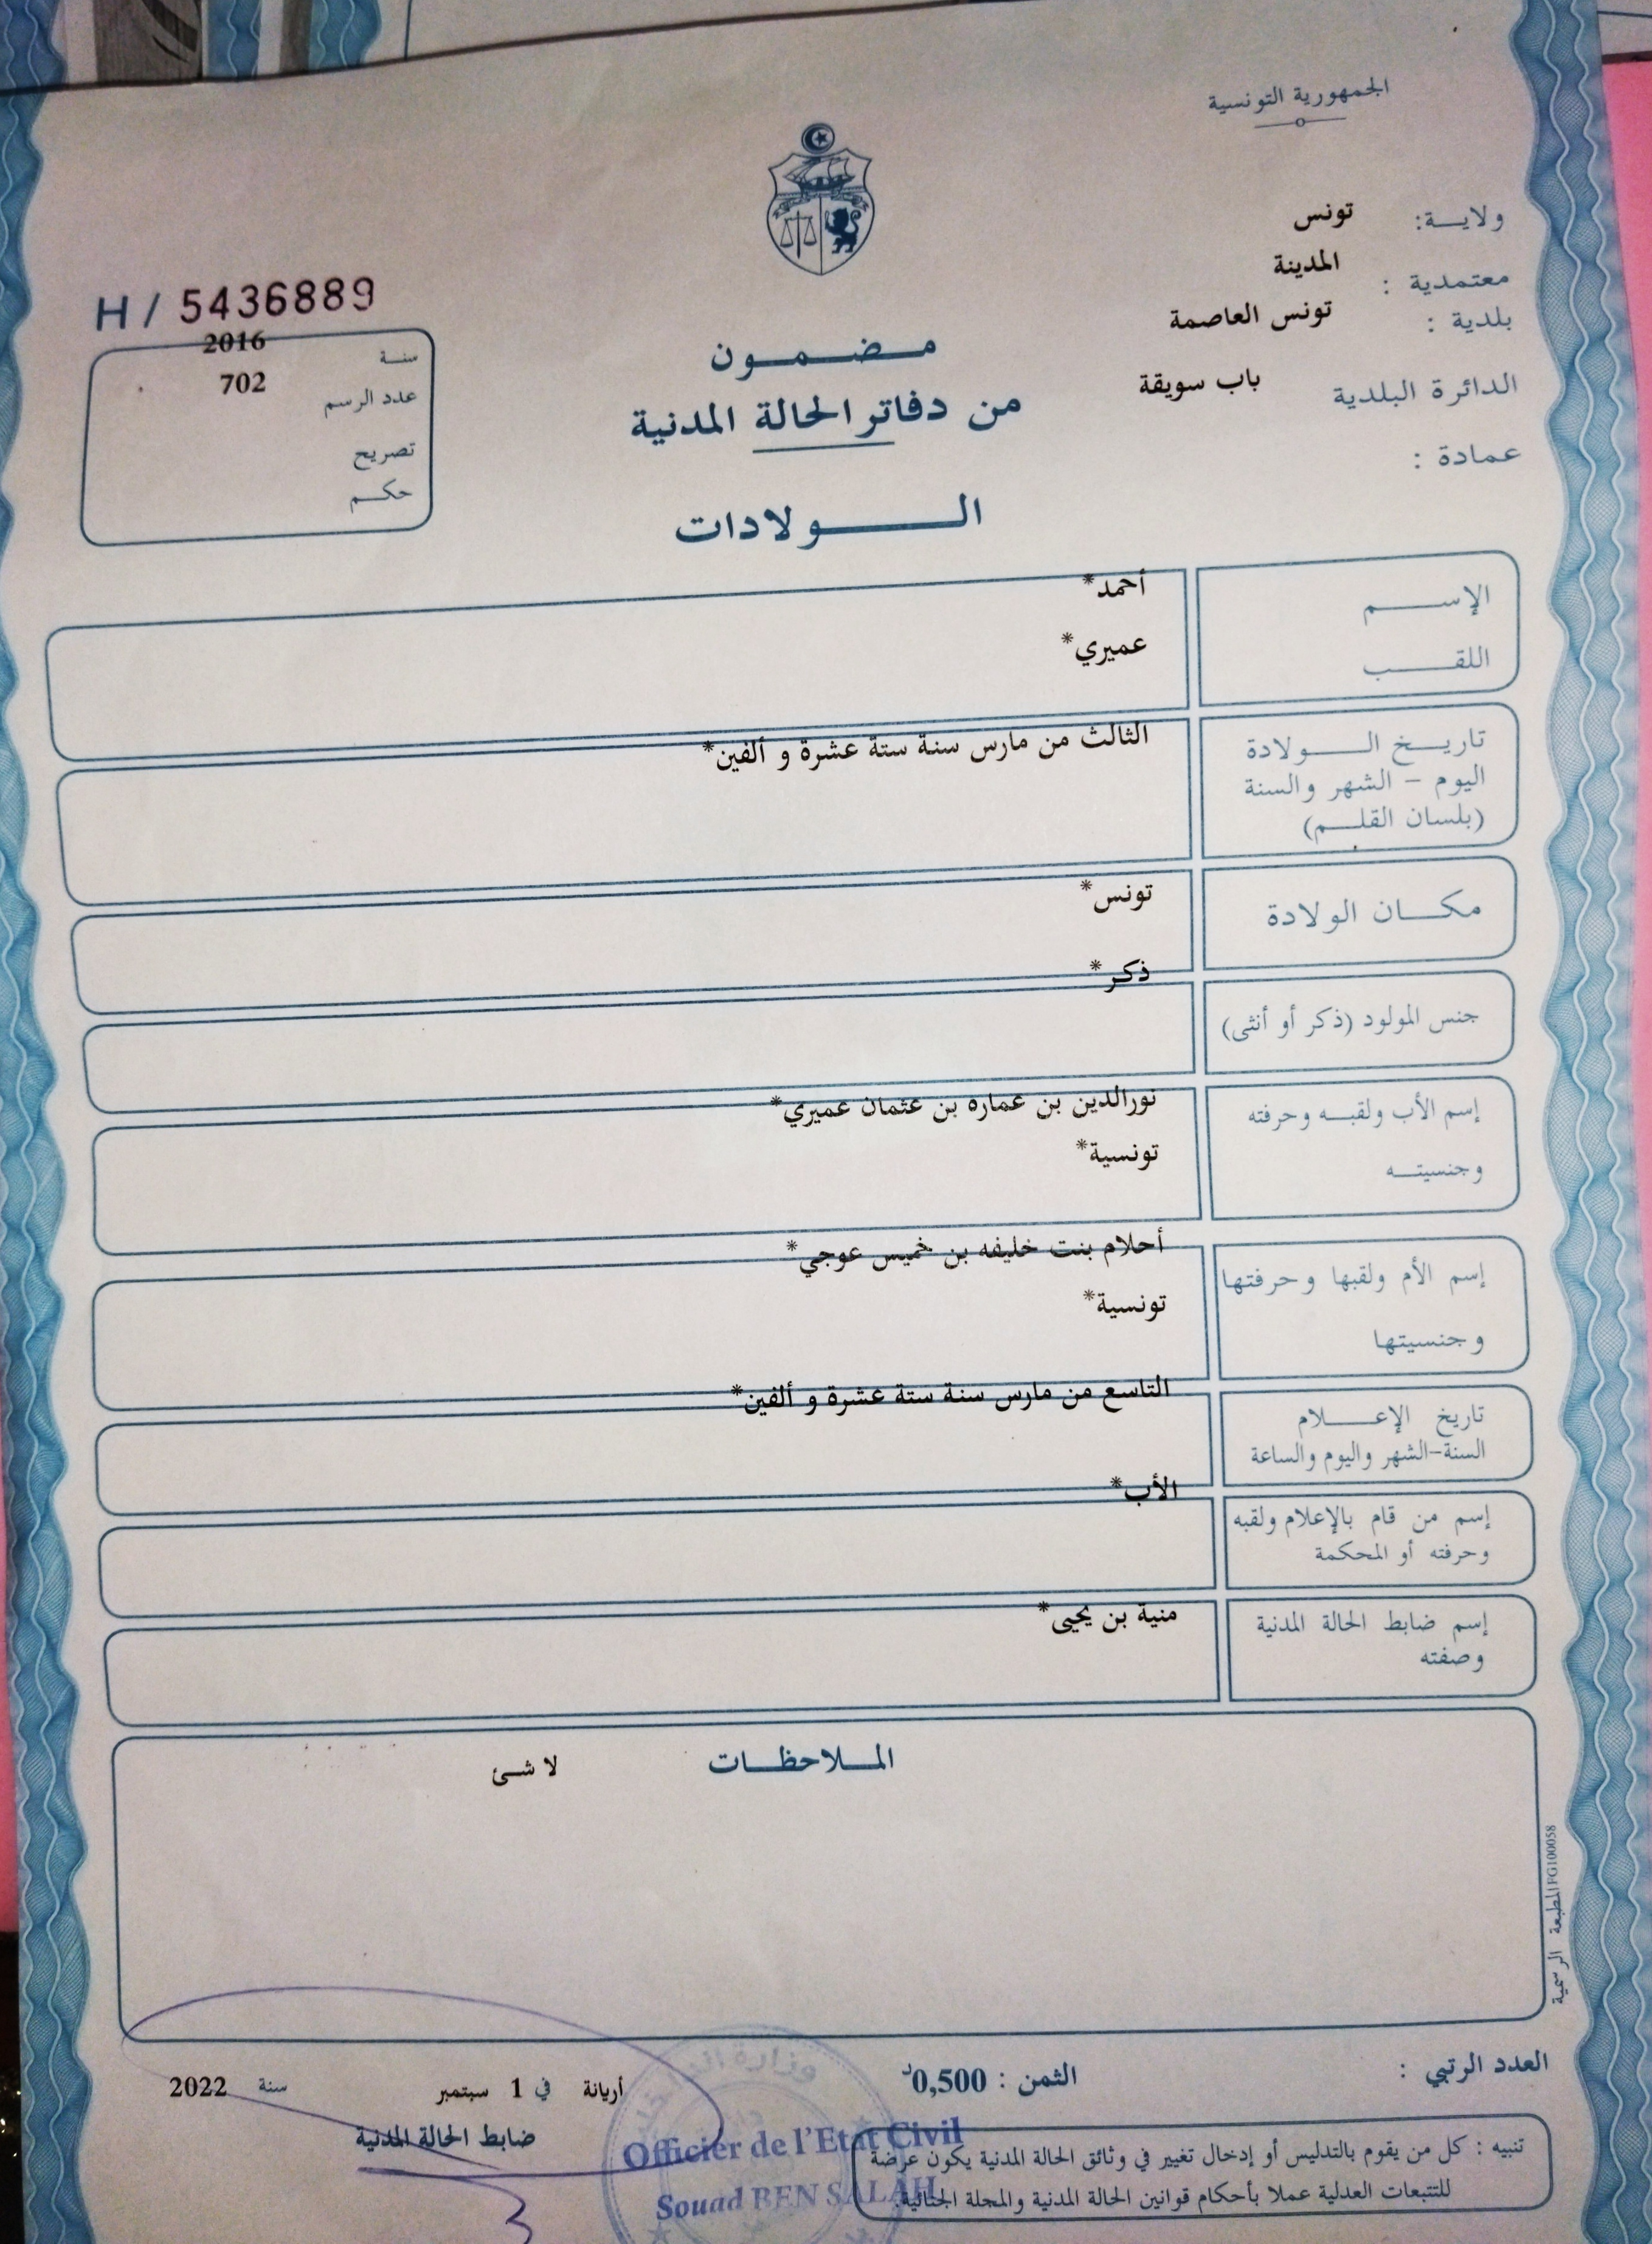 الجمهورية التونسية
ولايـــة: تونس
معتمدية : المدينة
بلدية : تونس العاصمة
الدائرة البلدية باب سويقة
عمادة :
H / 5436889
سنة 2016
عدد الرسم 702
تصريح
حكم
مضمون
من دفاتر الحالة المدنية
الولادات
الإسم أحمد*
اللقب عميري*
تاريخ الولادة الثالث من مارس سنة ستة عشرة و ألفين*
اليوم - الشهر والسنة
(بلسان القلم)
مكان الولادة تونس*
جنس المولود (ذكر أو أنثى) ذكر*
إسم الأب ولقبه وحرفته نورالدين بن عماره بن عثمان عميري*
وجنسيته تونسية*
إسم الأم ولقبها وحرفتها أحلام بنت خليفه بن خميس عوجي*
وجنسيتها تونسية*
تاريخ الإعلام التاسع من مارس سنة ستة عشرة و ألفين*
السنة-الشهر واليوم والساعة
إسم من قام بالإعلام ولقبه الأب*
وحرفته أو المحكمة
إسم ضابط الحالة المدنية منية بن يحيى*
وصفته
الملاحظات لا شئ
المطبعة الرسمية FG100058
العدد الرتبي :
الثمن : 0,500د
أريانة في 1 سبتمبر سنة 2022
ضابط الحالة المدنية
وزارة
Officier de l'Etat Civil
Souad BEN SALAH
تنبيه : كل من يقوم بالتدليس أو إدخال تغيير في وثائق الحالة المدنية يكون عرضة
للتتبعات العدلية عملا بأحكام قوانين الحالة المدنية والمجلة الجنائية.